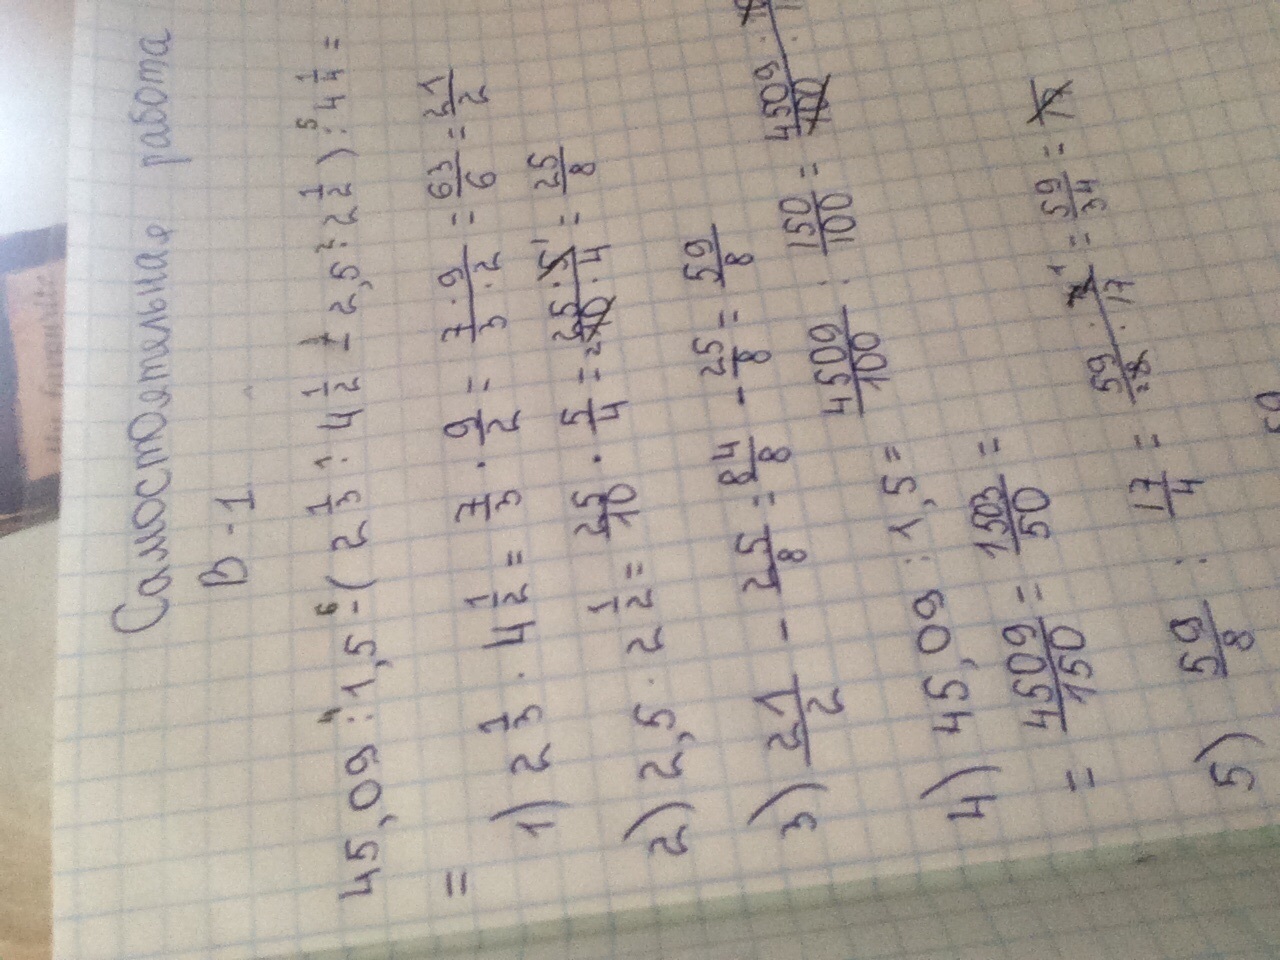 Самостоятельная работа
В - 1
45,09 : 1,5 - ( 2 1/3 · 4 1/2 - 2,5 · 2 1/2 ) : 4 1/4 =
=
1) 2 1/3 · 4 1/2 = 7/3 · 9/2 = 7 · 9/3 · 2 = 63/6 = 21/2
2) 2,5 · 2 1/2 = 25/10 · 5/4 = 25 · 5/10 · 4 = 25/8
3) 21/2 - 25/8 = 84/8 - 25/8 = 59/8
4) 45,09 : 1,5 = 4509/100 : 150/100 = 4509 ·/100
= 4509/150 = 1503/50 =
5) 59/8 : 17/4 = 59/8 · 17 = 59/34 =